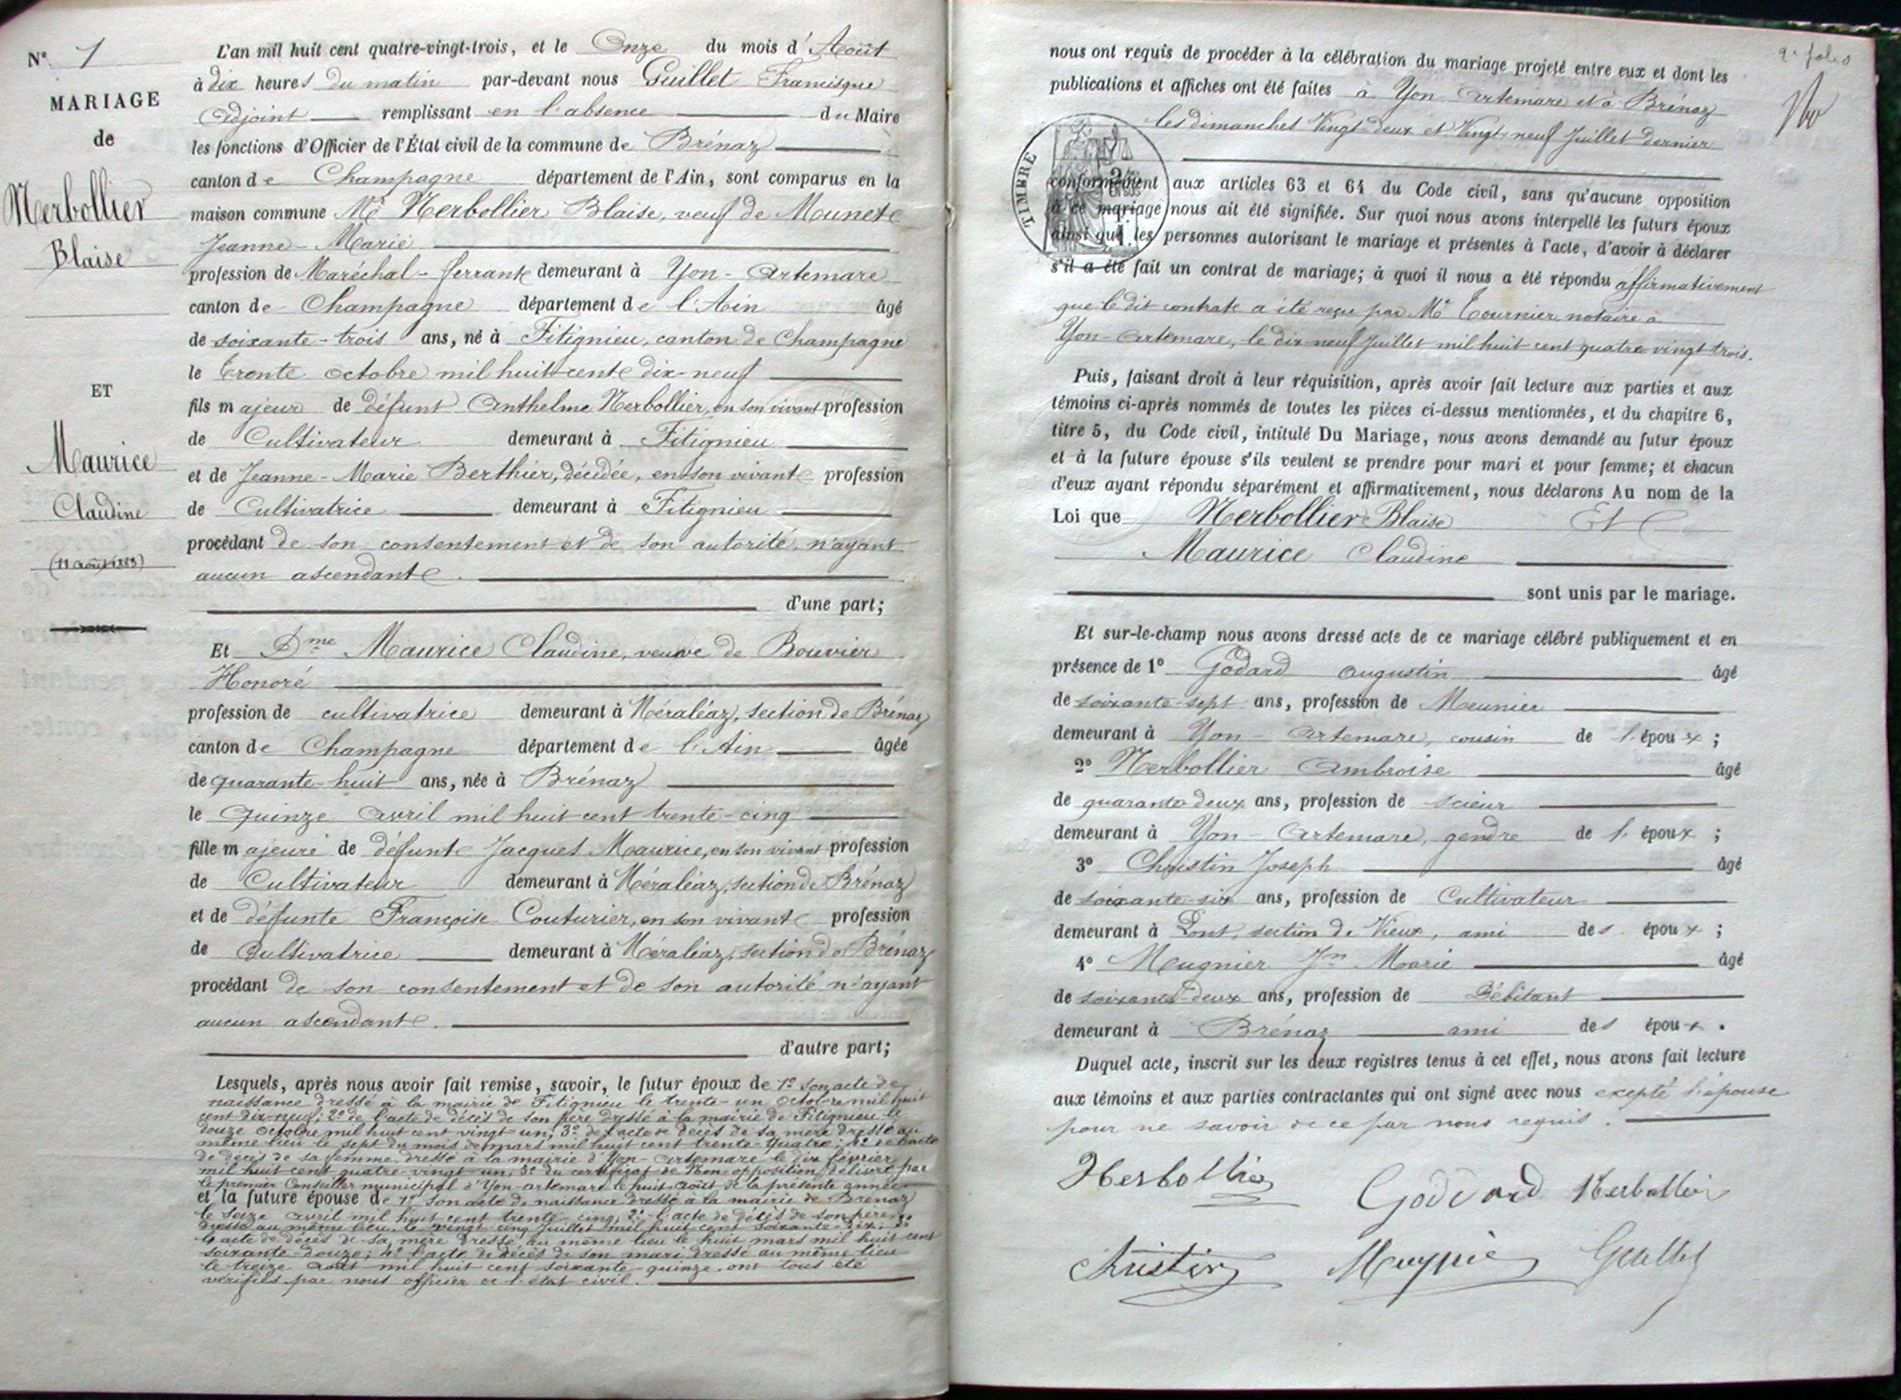 N° 1
MARIAGE
de
Herbollier
Blaise
ET
Maurice
Claudine
(11 août 1883)
L'an mil huit cent quatre-vingt-trois, et le Onze du mois d'Août
à dix heures du matin par-devant nous Guillet Francisque
Adjoint remplissant en l'absence du Maire
les fonctions d'Officier de l'État civil de la commune de Brénaz
canton de Champagne département de l'Ain, sont comparus en la
maison commune Mr Herbollier Blaise, veuf de Meunet
Jeanne-Marie
profession de Maréchal-ferrant demeurant à Yon-Artemare
canton de Champagne département de l'Ain âgé
de soixante-trois ans, né à Fitignieu, canton de Champagne
le trente octobre mil huit cent dix-neuf
fils majeur de défunt Anthelme Herbollier, en son vivant profession
de Cultivateur demeurant à Fitignieu
et de Jeanne-Marie Berthier, décédée, en son vivant profession
de Cultivatrice demeurant à Fitignieu
procédant de son consentement et de son autorité n'ayant
aucun ascendant.
d'une part;
Et Dme Maurice Claudine, veuve de Bouvier
Honoré
profession de cultivatrice demeurant à Méraléaz, section de Brénaz
canton de Champagne département de l'Ain âgée
de quarante-huit ans, née à Brénaz
le quinze avril mil huit cent trente-cinq
fille majeure de défunt Jacques Maurice, en son vivant profession
de Cultivateur demeurant à Méraléaz, section de Brénaz
et de défunte Françoise Couturier, en son vivant profession
de Cultivatrice demeurant à Méraléaz, section de Brénaz
procédant de son consentement et de son autorité n'ayant
aucun ascendant.
d'autre part;
Lesquels, après nous avoir fait remise, savoir, le futur époux de 1° son acte de
naissance dressé à la mairie de Fitignieu le trente-un Octobre mil huit
cent dix-neuf; 2° de l'acte de décès de son père dressé à la mairie de Fitignieu le
douze octobre mil huit cent vingt-un; 3° de l'acte de décès de sa mère dressé au
même lieu le sept du mois de mars mil huit cent trente-quatre; 4° de l'acte
de décès de sa femme dressé à la mairie d'Yon-Artemare le dix février
mil huit cent quatre-vingt-un; 5° du certificat de non opposition délivré par
le premier Conseiller municipal d'Yon-Artemare le huit août de la présente année
et la future épouse de 1° son acte de naissance dressé à la mairie de Brénaz
le seize avril mil huit cent trente-cinq; 2° l'acte de décès de son père
dressé au même lieu le vingt-cinq Juillet mil huit cent soixante-dix; 3°
l'acte de décès de sa mère dressé au même lieu le huit mars mil huit cent
soixante-douze; 4° l'acte de décès de son mari dressé au même lieu
le treize août mil huit cent soixante-quinze, ont tous été
vérifiés par nous officier de l'état civil.
nous ont requis de procéder à la célébration du mariage projeté entre eux et dont les
publications et affiches ont été faites à Yon-Artemare et à Brénaz
les dimanches Vingt-deux et Vingt-neuf Juillet dernier
TIMBRE
conformément aux articles 63 et 64 du Code civil, sans qu'aucune opposition
à ce mariage nous ait été signifiée. Sur quoi nous avons interpellé les futurs époux
ainsi que les personnes autorisant le mariage et présentes à l'acte, d'avoir à déclarer
s'il a été fait un contrat de mariage; à quoi il nous a été répondu affirmativement
que le dit contrat a été reçu par Me Tournier notaire à
Yon-Artemare, le dix-neuf Juillet mil huit cent quatre-vingt-trois.
Puis, faisant droit à leur réquisition, après avoir fait lecture aux parties et aux
témoins ci-après nommés de toutes les pièces ci-dessus mentionnées, et du chapitre 6,
titre 5, du Code civil, intitulé Du Mariage, nous avons demandé au futur époux
et à la future épouse s'ils veulent se prendre pour mari et pour femme; et chacun
d'eux ayant répondu séparément et affirmativement, nous déclarons Au nom de la
Loi que Herbollier Blaise Et
Maurice Claudine
sont unis par le mariage.
Et sur-le-champ nous avons dressé acte de ce mariage célébré publiquement et en
présence de 1° Godard Augustin âgé
de soixante-sept ans, profession de Meunier
demeurant à Yon-Artemare, cousin de l'époux;
2° Herbollier Ambroise âgé
de quarante-deux ans, profession de scieur
demeurant à Yon-Artemare, gendre de l'époux;
3° Christin Joseph âgé
de soixante-six ans, profession de Cultivateur
demeurant à Pont, section de Vieux, ami des époux;
4° Meugnier Jn Marie âgé
de soixante-deux ans, profession de Débitant
demeurant à Brénaz ami des époux.
Duquel acte, inscrit sur les deux registres tenus à cet effet, nous avons fait lecture
aux témoins et aux parties contractantes qui ont signé avec nous excepté l'épouse
pour ne savoir de ce par nous requis.
Herbollier
Godard Herbollier
Christin Meugnier Guillet